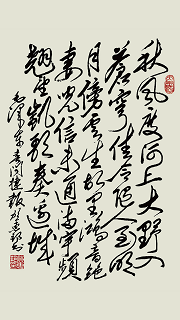 秋风度河上大野入
苍穹佳令随人至明
月傍云生故里鸿音绝
妻儿信未通满宇频
翘望凯歌奏边城
毛泽东喜闻捷报